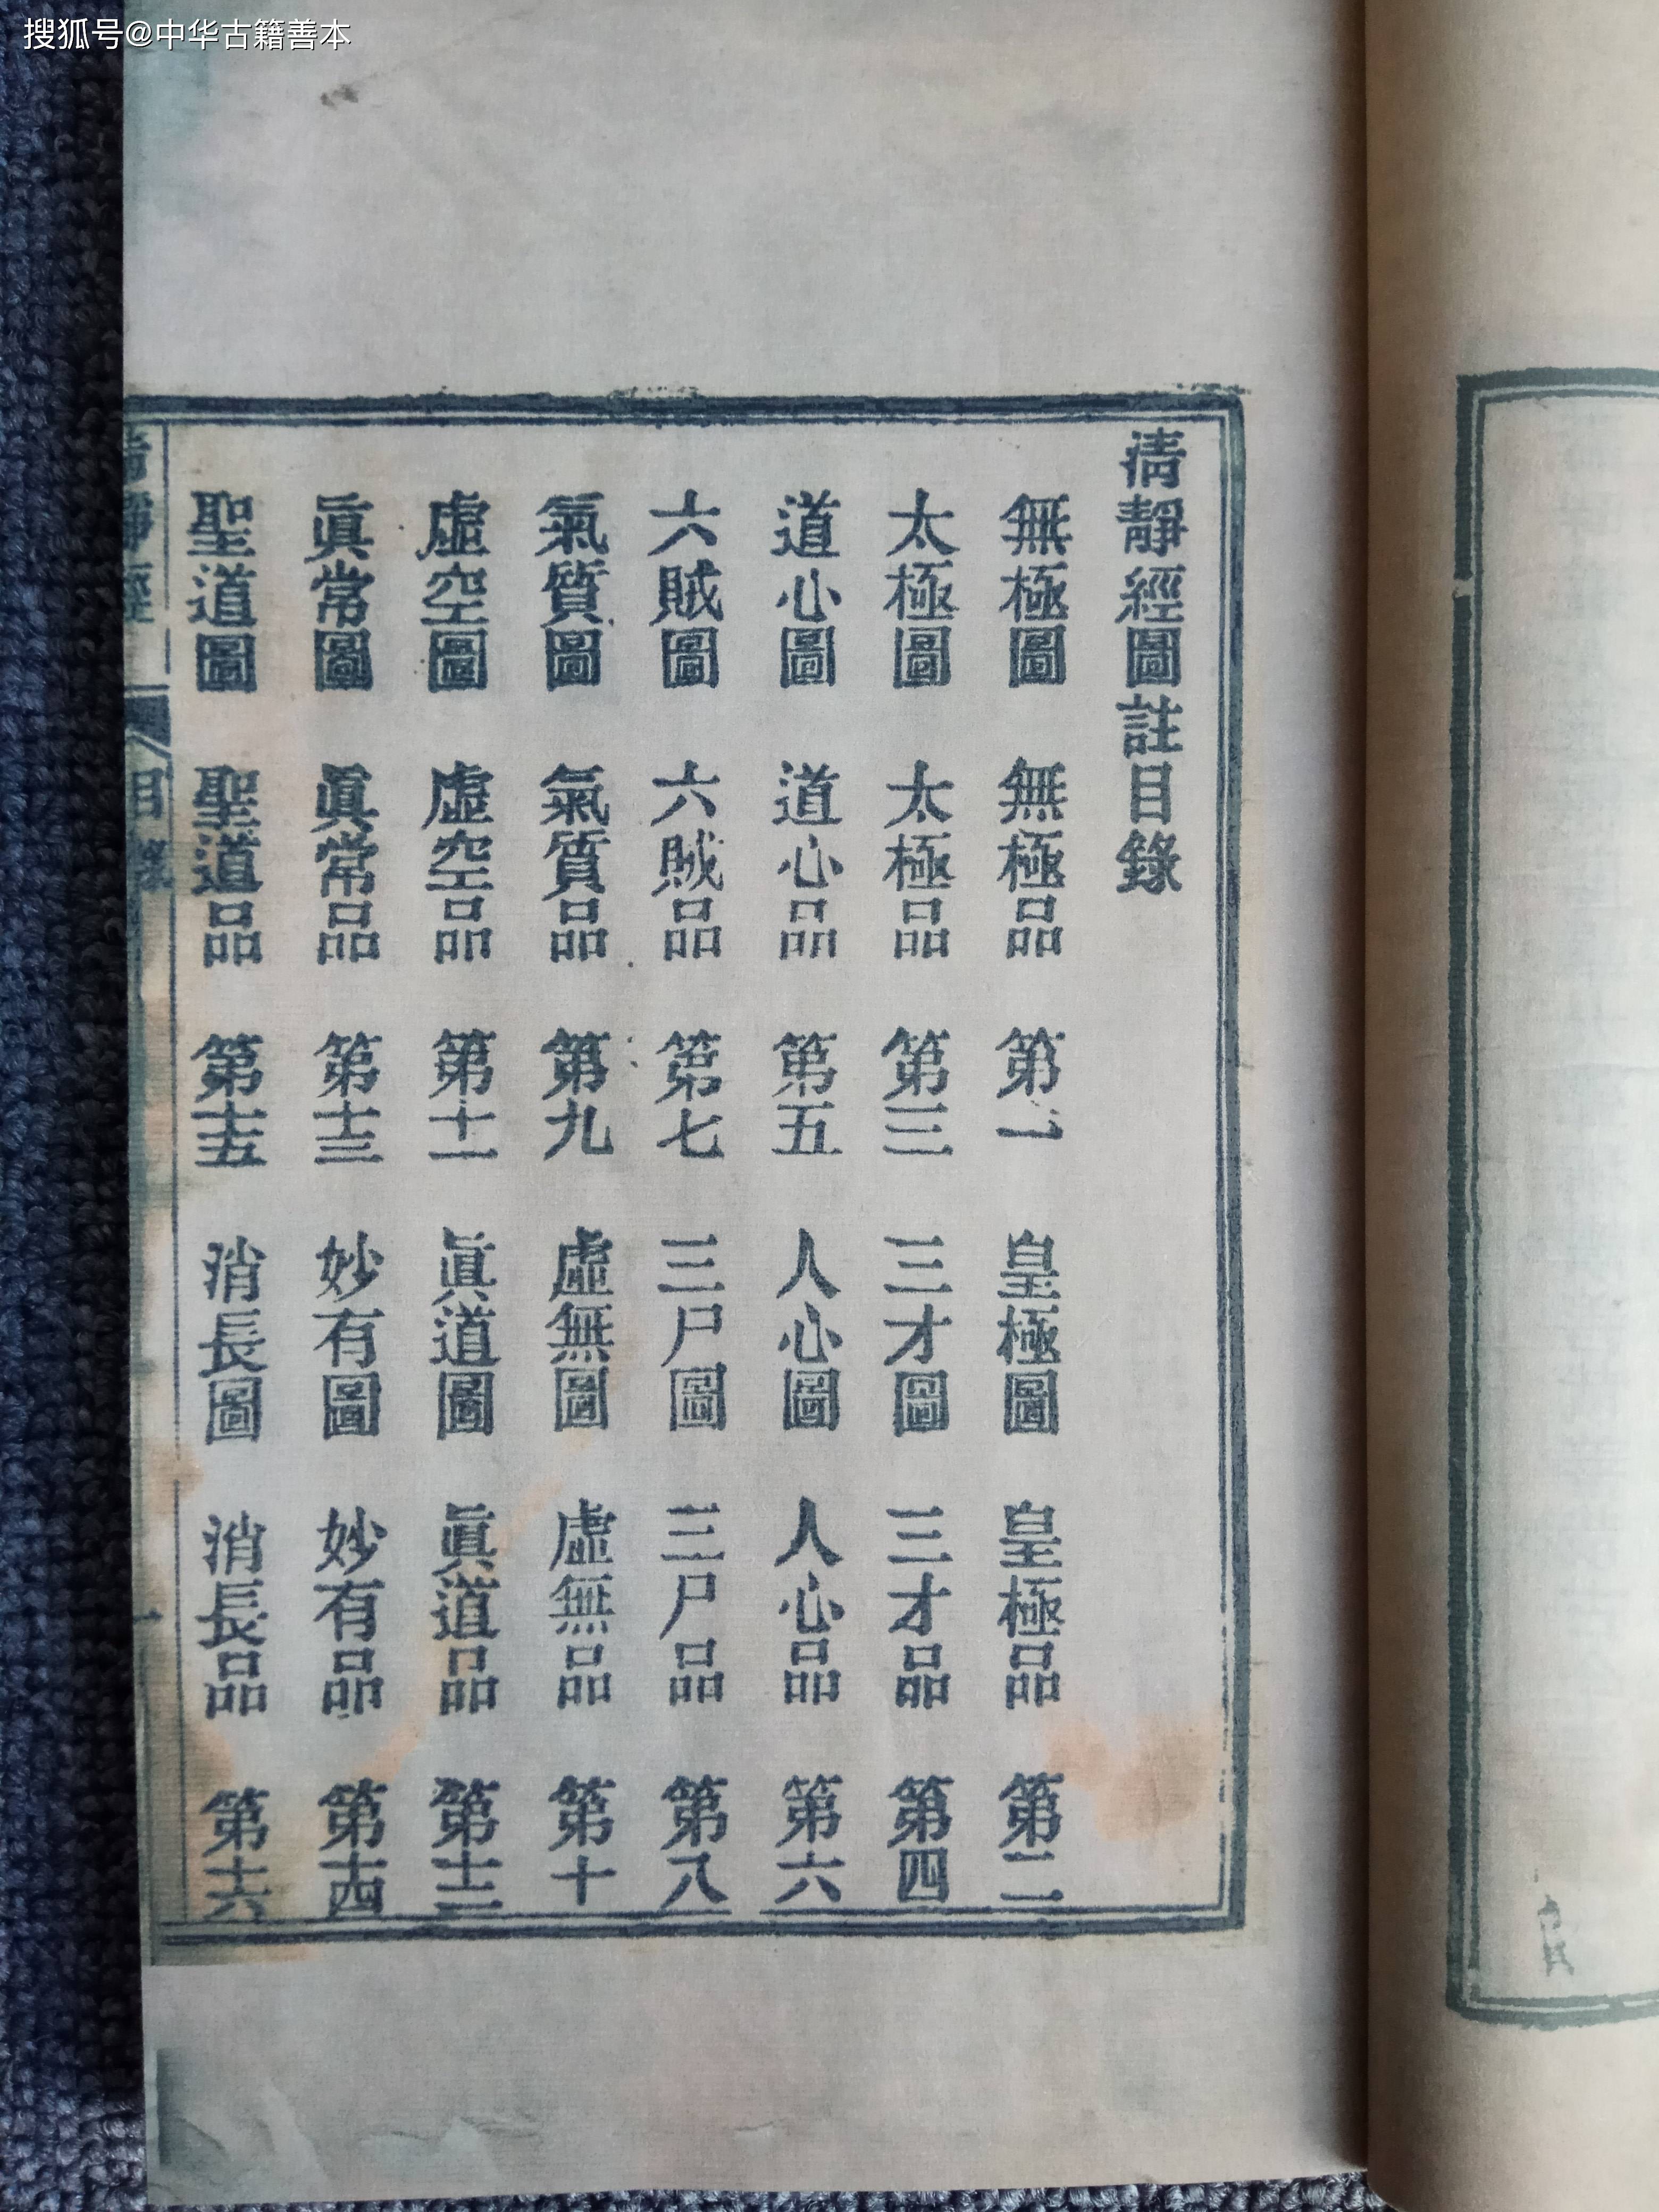 搜狐号@中华古籍善本
清靜經圖註目錄
無極圖 無極品 第一 皇極圖 皇極品 第二
太極圖 太極品 第三 三才圖 三才品 第四
道心圖 道心品 第五 人心圖 人心品 第六
六賊圖 六賊品 第七 三尸圖 三尸品 第八
氣質圖 氣質品 第九 虛無圖 虛無品 第十
虛空圖 虛空品 第十一 眞道圖 眞道品 第十二
眞常圖 眞常品 第十三 妙有圖 妙有品 第十四
聖道圖 聖道品 第十五 消長圖 消長品 第十六
清靜經 目錄 一